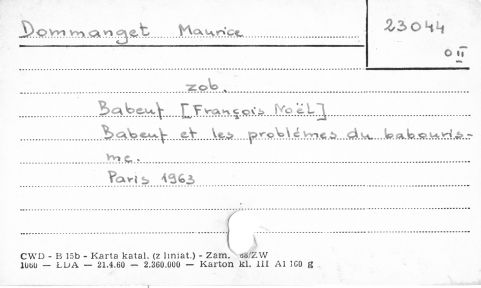 Dommanget Maurice
23044
0 II
zob.
Babeuf [François Noël]
Babeuf et les problèmes du babouris-
me.
Paris 1963
CWD - B 15b - Karta katal. (z liniat.) - Zam. 68/ZW
1060 — ŁDA — 21.4.60 — 2.360.000 — Karton kl. III A1 160 g